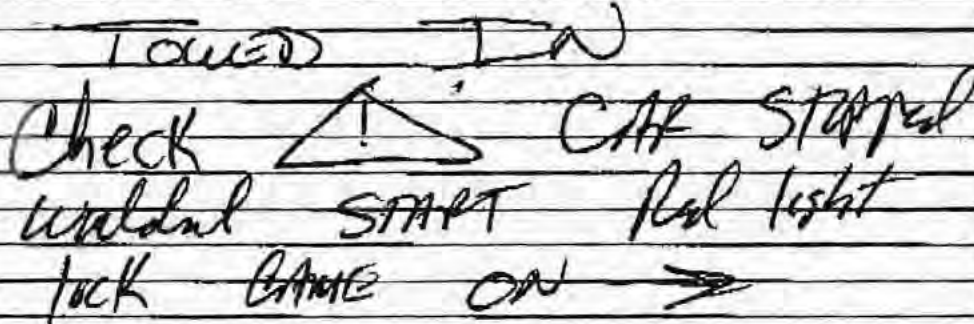 TOWED IN
Check ⚠ CAR STAPPED
wouldnt START Red light
lock CAME ON →